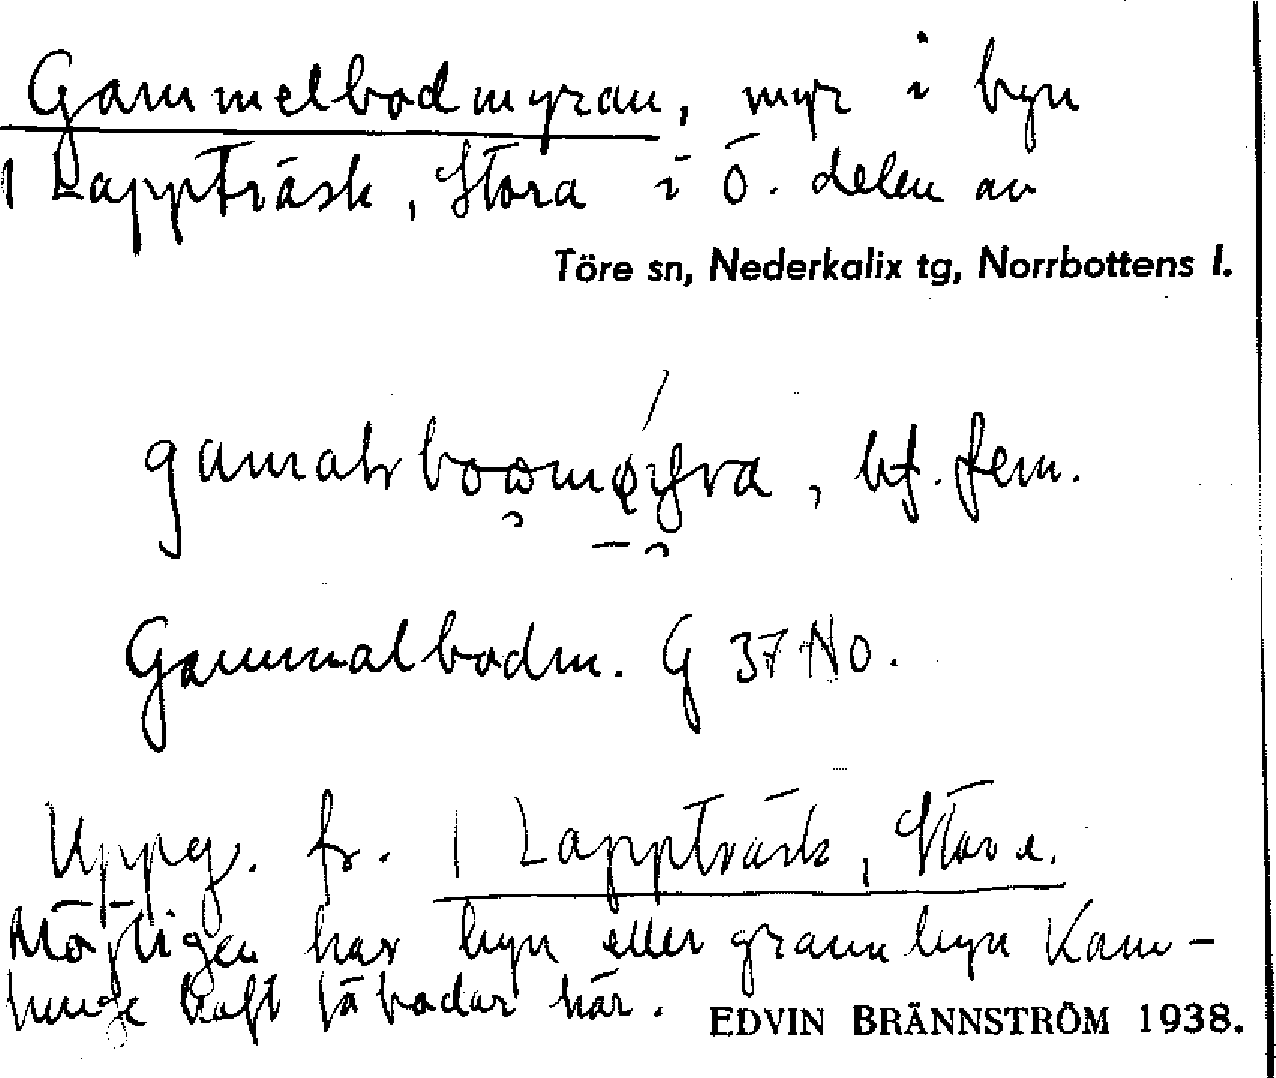 Gammelbodmyran, myr i byn
1 Lappträsk, Stora i ö. delen av
Töre sn, Nederkalix tg, Norrbottens l.
bf. fem.
Gammalbodm. G 37 NO.
Uppg. fr. 1 Lappträsk, Stora.
Möjligen har byn eller grannbyn Kam-
punge haft fäbodar här.
EDVIN BRÄNNSTRÖM 1938.